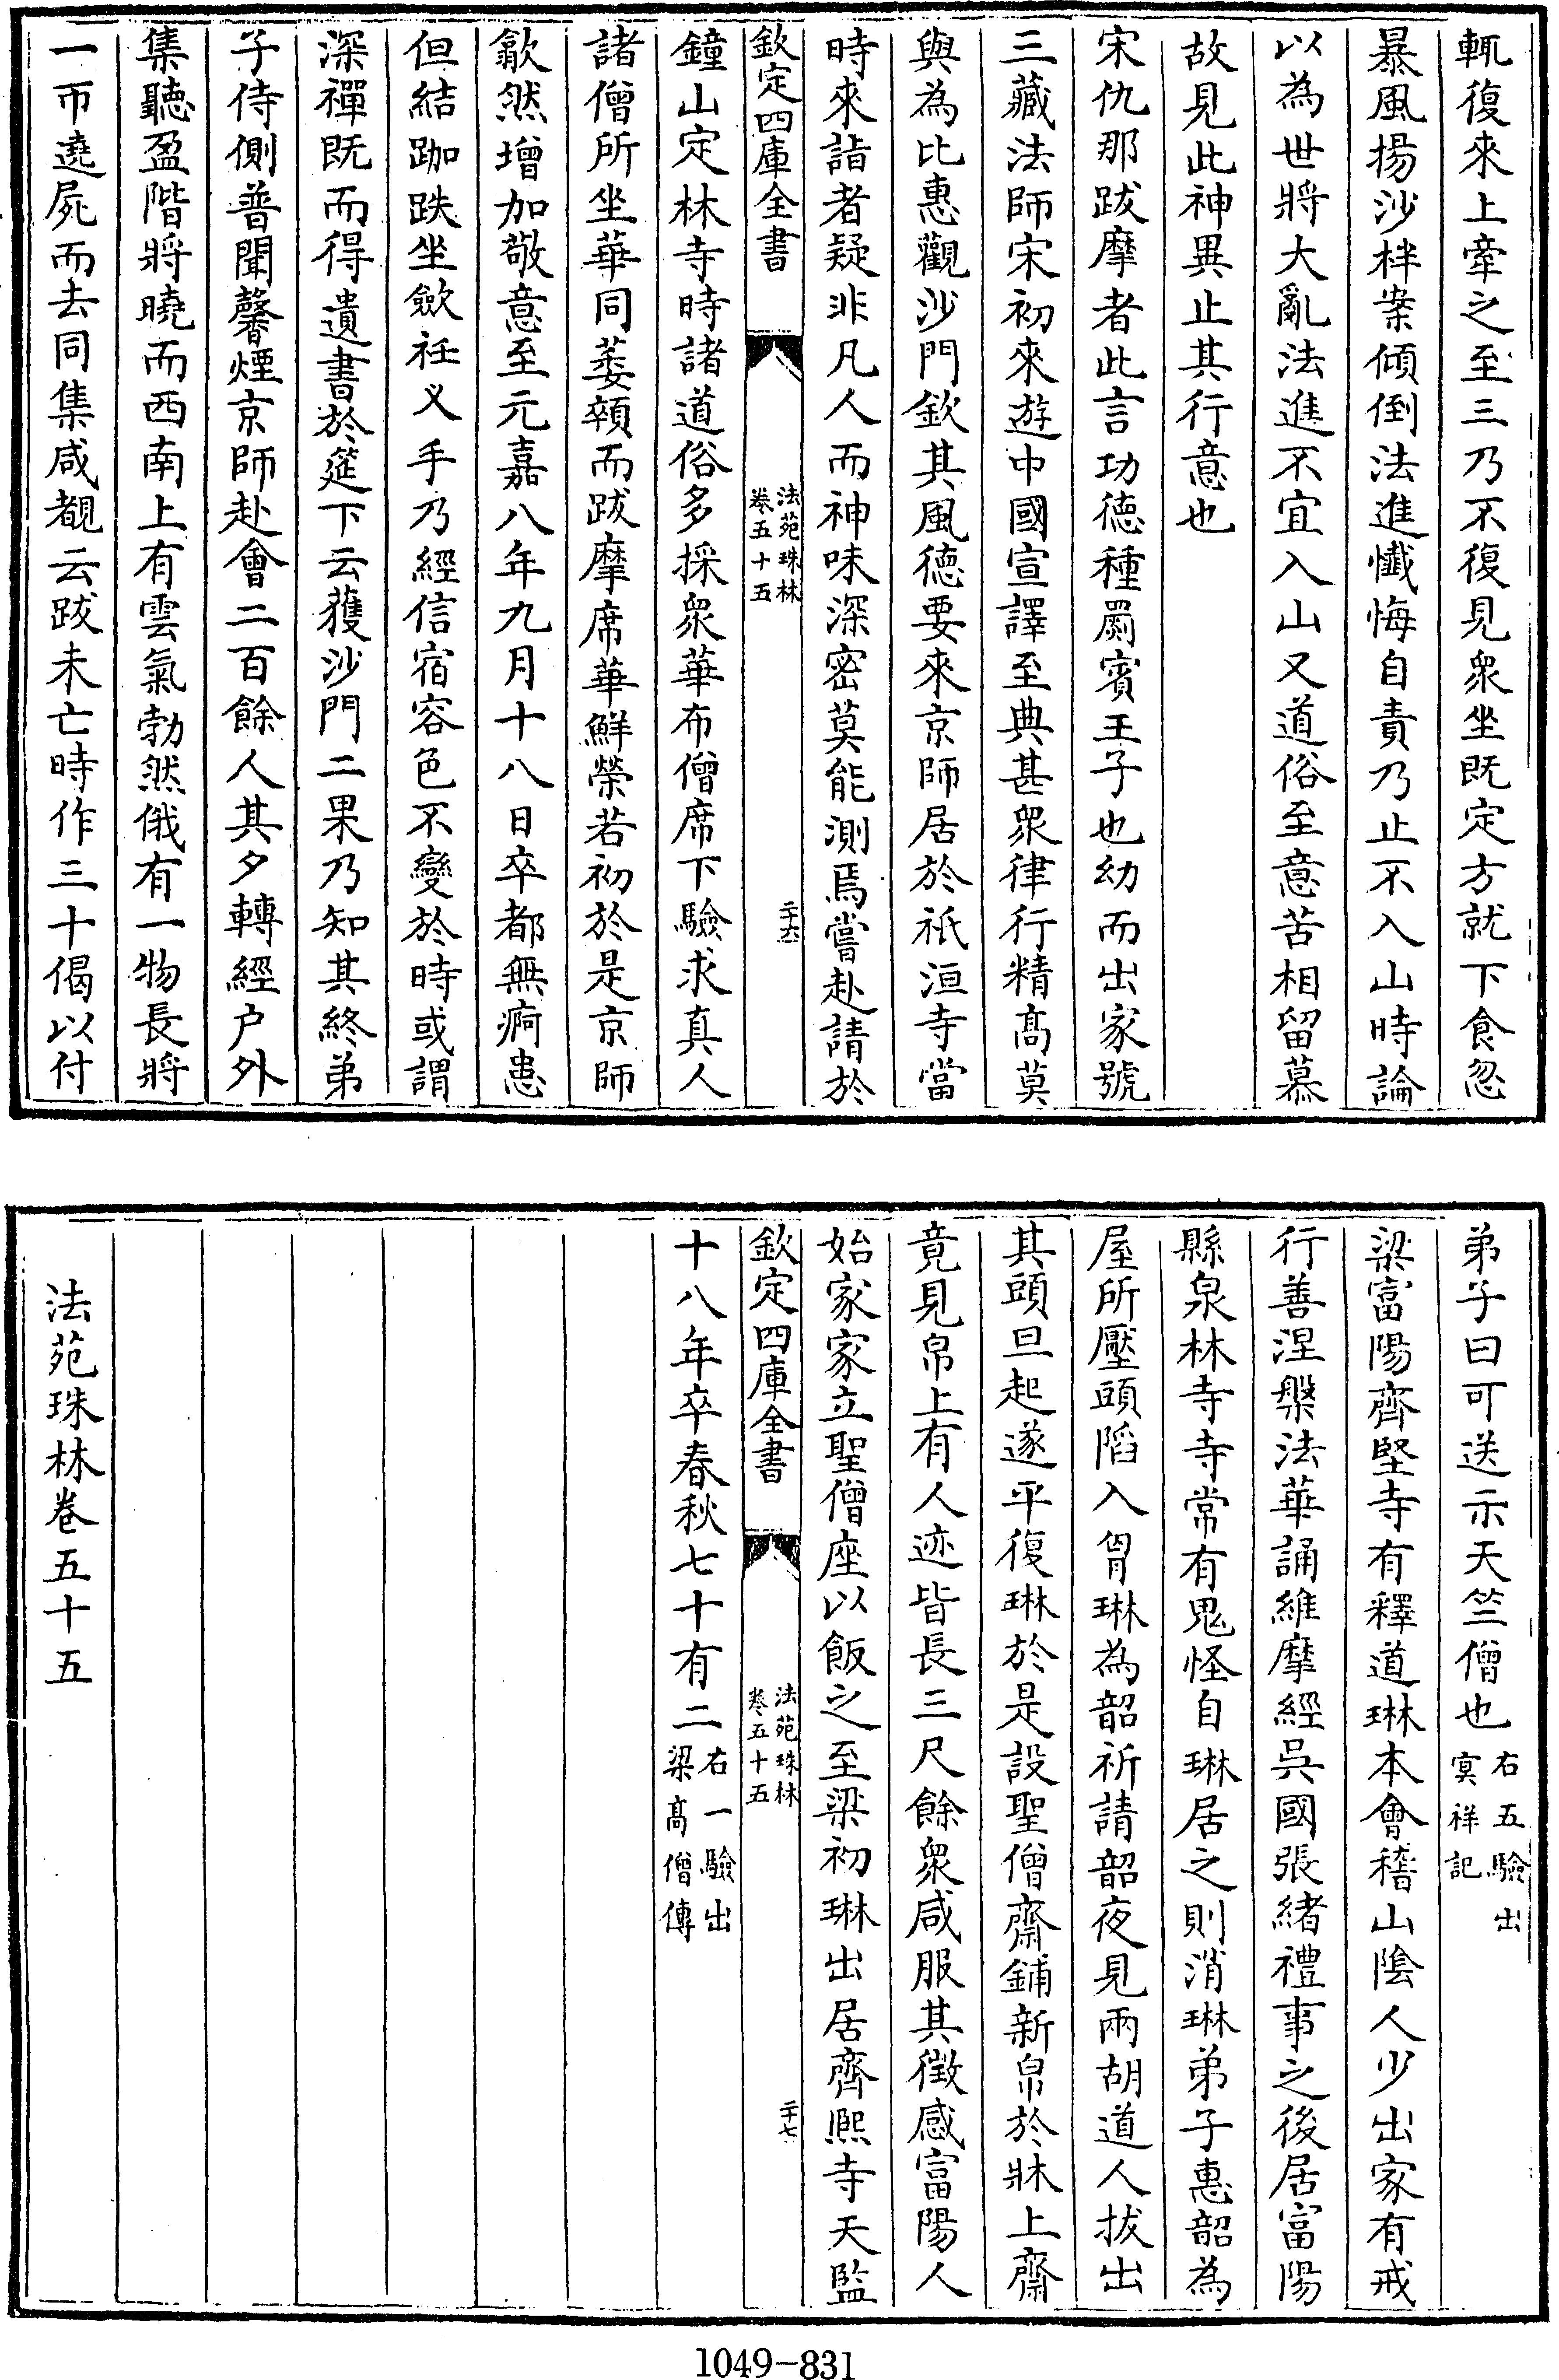 輒復來上牽之至三乃不復見衆坐既定方就下食忽
暴風揚沙柈案傾倒法進懺悔自責乃止不入山時論
以為世將大亂法進不宜入山又道俗至意苦相留慕
故見此神異止其行意也
宋仇那跋摩者此言功徳種罽賓王子也幼而出家號
三藏法師宋初來遊中國宣譯至典甚衆律行精髙莫
與為比惠觀沙門欽其風德要來京師居於祇洹寺當
時來詣者疑非凡人而神味深密莫能測焉嘗赴請於
欽定四庫全書
法苑珠林
卷五十五
二十六
鐘山定林寺時諸道俗多採衆華布僧席下驗求真人
諸僧所坐華同萎顇而跋摩席華鮮榮若初於是京師
歙然增加敬意至元嘉八年九月十八日卒都無痾患
但結跏趺坐斂衽叉手乃經信宿容色不變於時或謂
深禪既而得遺書於筵下云獲沙門二果乃知其終弟
子侍側普聞馨煙京師赴會二百餘人其夕轉經户外
集聽盈階將曉而西南上有雲氣勃然俄有一物長將
一帀遶屍而去同集咸覩云跋未亡時作三十偈以付
弟子曰可送示天竺僧也
右五驗出
冥祥記
梁富陽齊堅寺有釋道琳本會稽山陰人少出家有戒
行善涅槃法華誦維摩經吳國張緒禮事之後居富陽
縣泉林寺寺常有鬼怪自琳居之則消琳弟子惠韶為
屋所壓頭陷入胷琳為韶祈請韶夜見兩胡道人拔出
其頭旦起遂平復琳於是設聖僧齋鋪新帛於牀上齋
竟見帛上有人迹皆長三尺餘衆咸服其徴感富陽人
始家家立聖僧座以飯之至梁初琳出居齊熙寺天監
欽定四庫全書
法苑珠林
卷五十五
二十七
十八年卒春秋七十有二
右一驗出
梁髙僧傳
法苑珠林卷五十五
1049-831